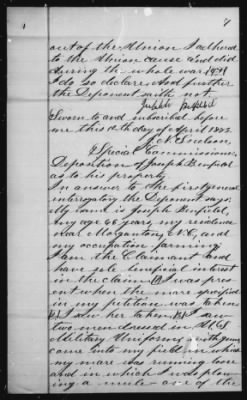 7
out of the Union I adhered
to the Union cause and did
during the whole war
I do so declare. And further
the Deponent saith not.
Joseph
Sworn to and subscribed before
me this 12th day of April 1872.
Special Commissioner
Deposition of Joseph
as to his property.
In answer to the first general
interrogatory the Deponent says:
My name is Joseph
my age 66 years, my residence
near Morganton, N.C, and
my occupation farming
I am the Claimant and
have sole beneficial interest
in the claim I was pre-
sent when the mare specified
in my petition was taken
I saw her taken I saw
two men dressed in U.S.
Military Uniforms with guns
come into my field in which
my mare was running loose
and in which I was plow-
ing a mule - one of the